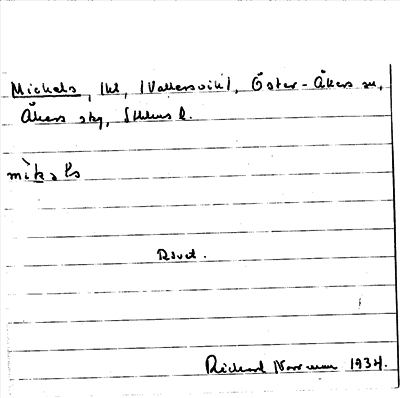 Mickels, 1kl, (Vallersvik), Öster-Åkers sn,
Åkers skg, Sthlms l.
mìkəls
Rivet.
Richard Norrman 1934.